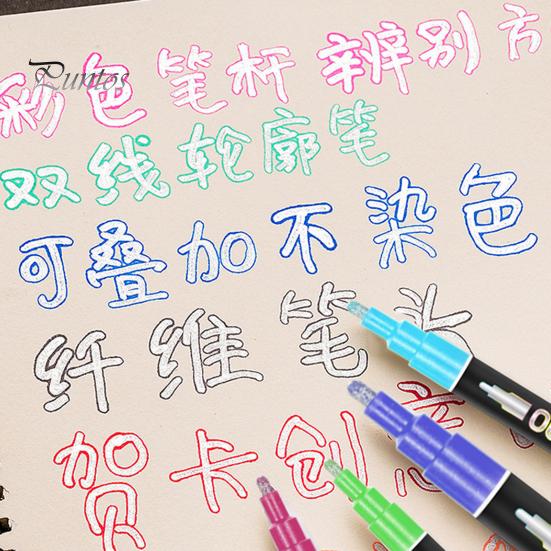 Puntos
彩色笔杆 辨别方
双线轮廓笔
可叠加不染色
纤维笔头
贺卡创意